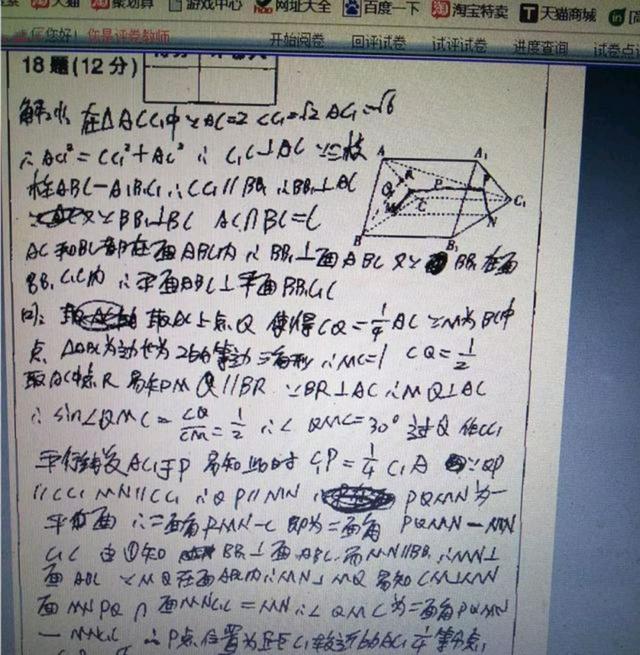 天猫 聚划算 游戏中心 网址大全 百度一下 淘宝特卖 天猫商城
您好! 你是评卷教师 开始阅卷 回评试卷 试评试卷 进度查询
18题(12分)
在△ACC₁中∵AC=2 CC₁=√2 AC₁=√6
∴AC₁²=CC₁²+AC² ∴C₁C⊥AC ∵三棱
柱ABC-A₁B₁C₁∴CC₁∥BB₁∴BB₁⊥AC
又∵BB₁⊥BC AC∩BC=C
AC和BC都在面ABC内∴BB₁⊥面ABC 又∵BB₁在面
BB₁C₁C内 ∴平面ABC⊥平面BB₁C₁C
取AC上点Q 使得CQ=1/4AC ∵M为BC中
点 △ABC为边长为2的等边三角形∴MC=1 CQ=1/2
取AC中点R 易知MQ∥BR ∵BR⊥AC∴MQ⊥AC
∴sin∠QMC=CQ/CM=1/2 ∴∠QMC=30° 过Q作CC₁
平行线交AC₁于P 易知此时C₁P=1/4C₁A ∵QP
∥CC₁ MN∥CC₁ ∴QP∥MN PQMN为一
平面 ∴二面角PMN-C即为二面角 PQMN-MN
C₁C 由①知 BB₁⊥面ABC 而MN∥BB₁∴MN⊥
面ABC ∵MQ在面ABC内∴MN⊥MQ 易知CM⊥MN
面MNPQ∩面MNC₁C=MN∴∠QMC为二面角PQMN
-MNC₁C ∴P点位置为距C₁较近的AC₁ 1/4等分点
A A₁ R Q P C C₁ M N B B₁